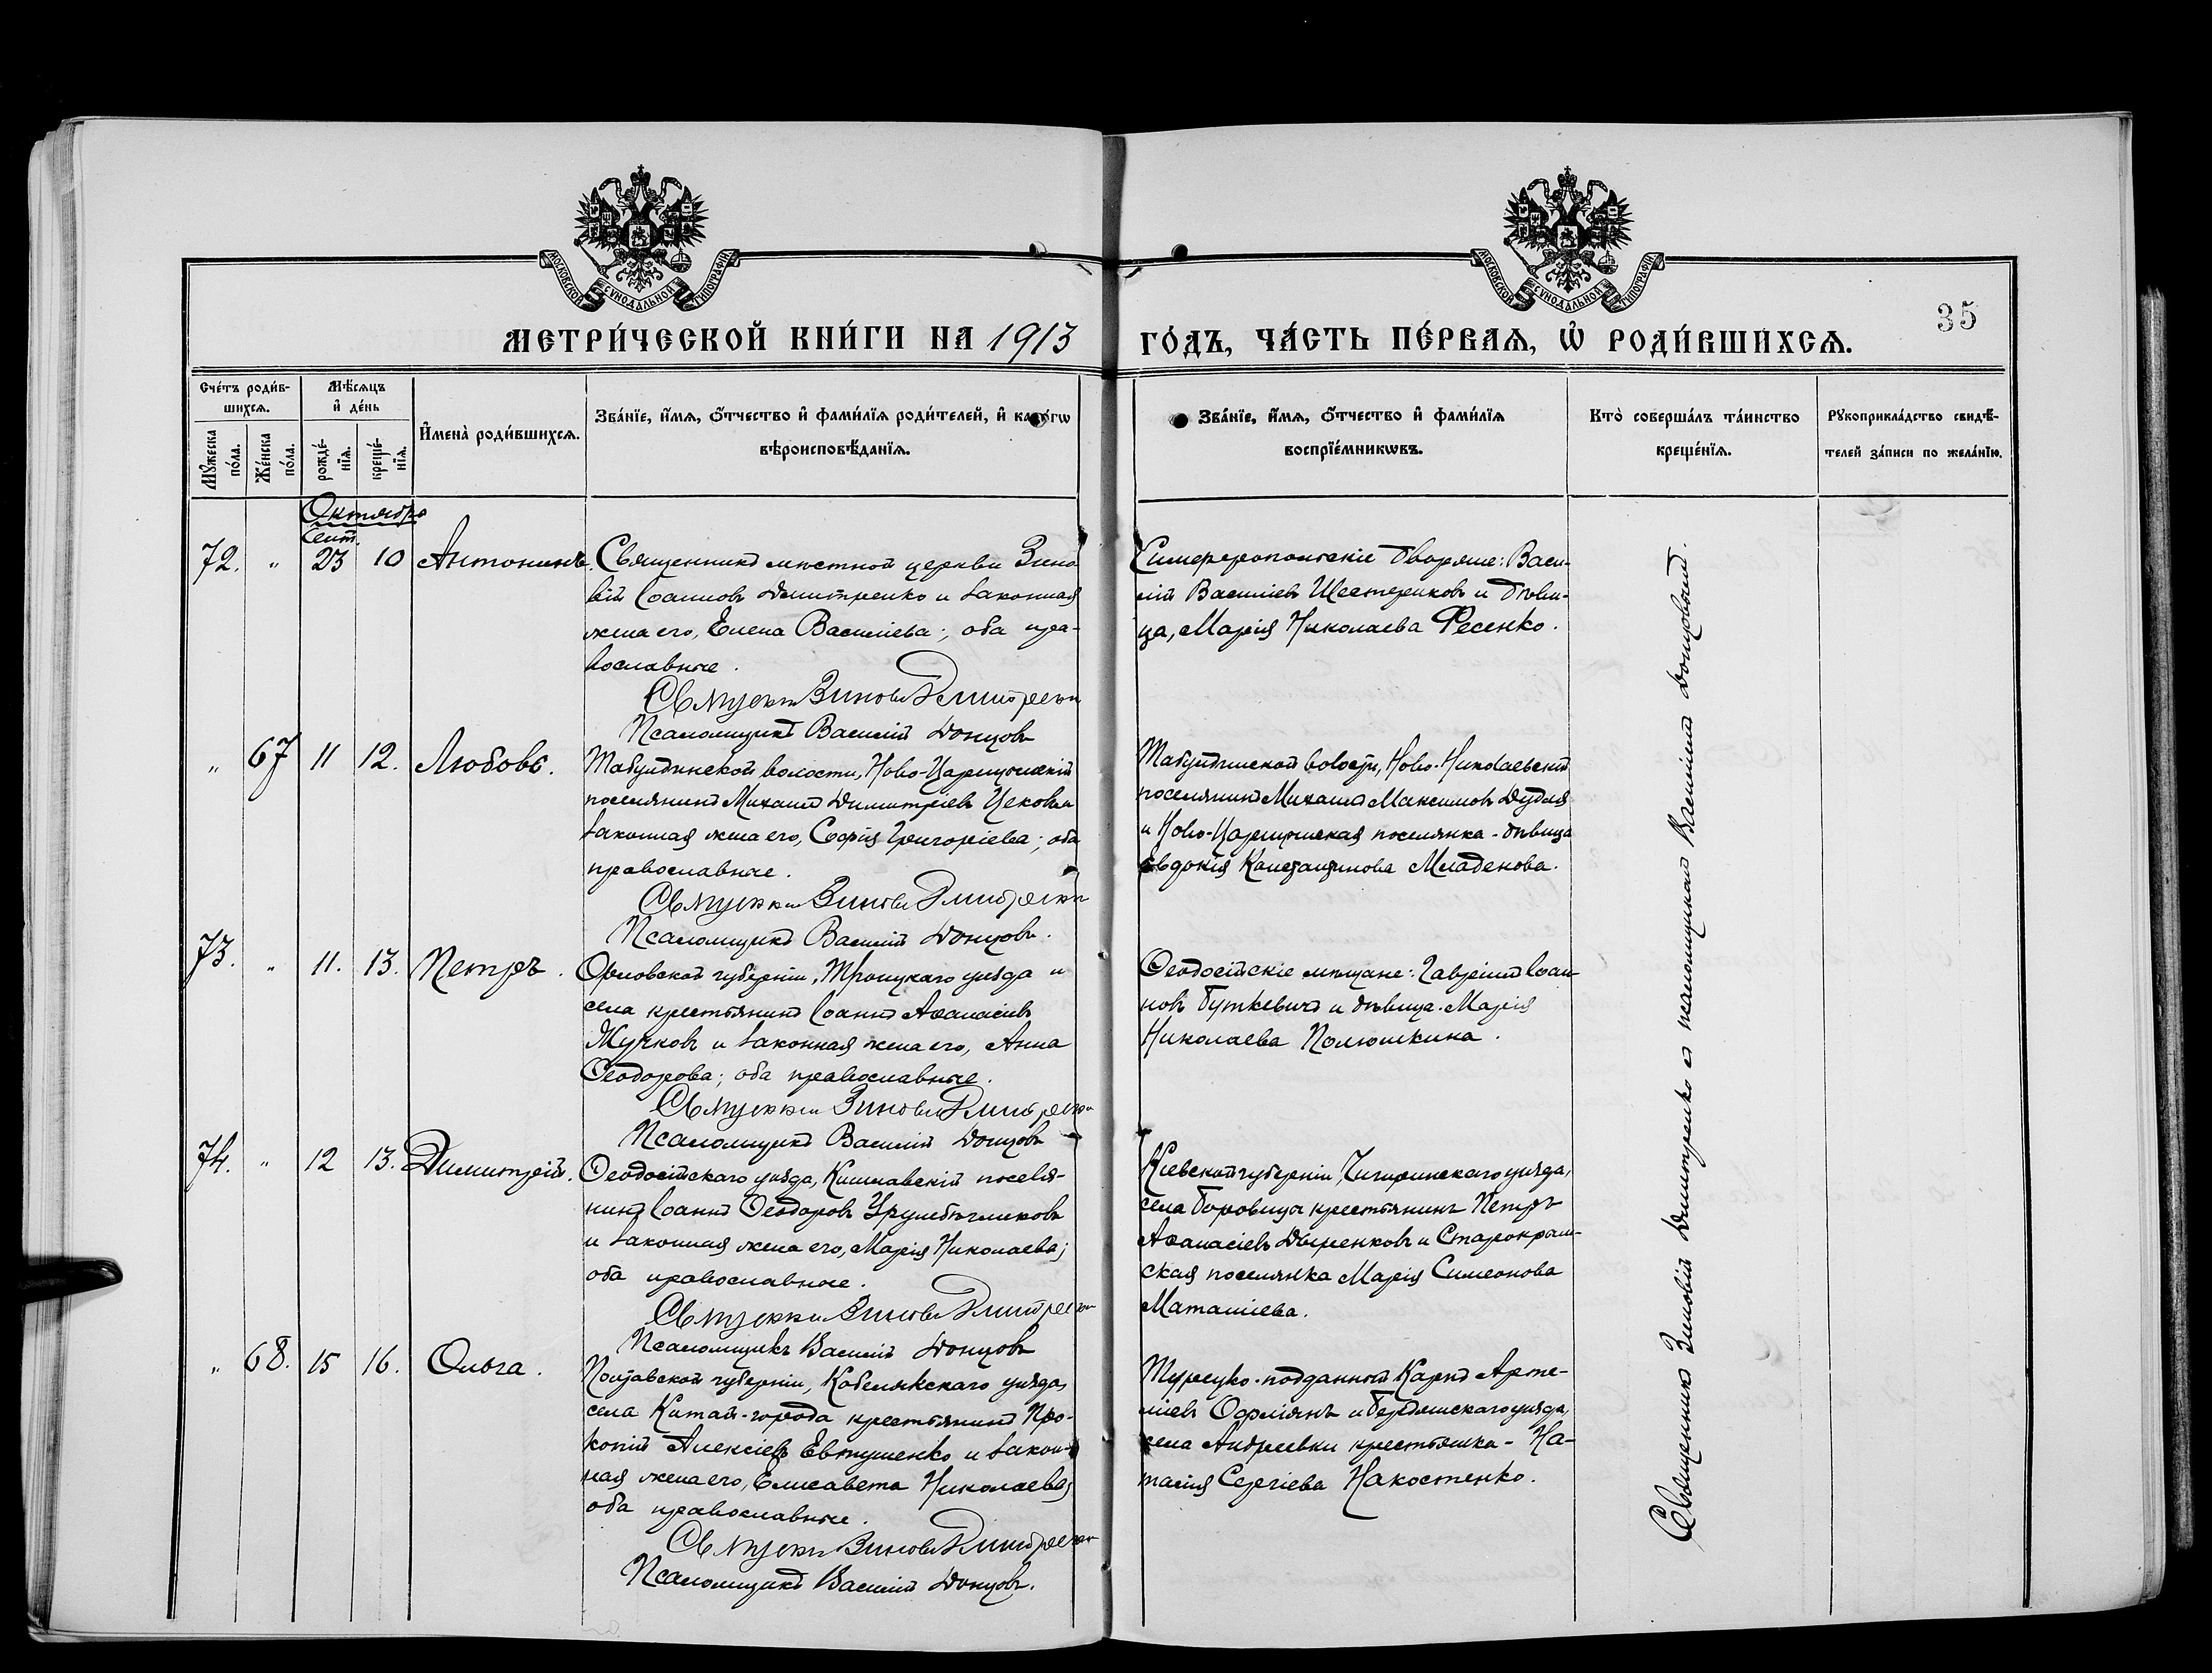 МОСКОВСКОЙ СѴНОДАЛЬНОЙ ТИПОГРАФІИ
МОСКОВСКОЙ СѴНОДАЛЬНОЙ ТИПОГРАФІИ
35
МЕТРИ́ЧЕСКОЙ КНИ́ГИ НА 1913 ГО́ДЪ, ЧА́СТЬ ПЕ́РВАѦ, Ѡ҆ РОДИ́ВШИХСѦ.
Сче́тъ роди́в-
шихсѧ.
Мꙋ́жеска по́ла.
Же́нска по́ла.
Мѣ́сѧцъ
и҆ де́нь
рожде́-
нїѧ.
креще́-
нїѧ.
И҆мена̀ роди́вшихсѧ.
Зва́нїе, и҆́мѧ, ѻ҆́тчество и҆ фами́лїѧ роди́телей, и҆ како́гѡ
вѣроисповѣ́данїѧ.
Зва́нїе, и҆́мѧ, ѻ҆́тчество и҆ фами́лїѧ
воспрїе́мникѡвъ.
Кто̀ соверша́лъ та́инство
креще́нїѧ.
Рꙋкоприкла́дство свидѣ́-
телей за́писи по жела́нїю.
Октябрь
Сент.
72. " 23 10 Антонинъ.
Священникъ мѣстной церкви Зино
вій Іоанновъ Димитренко и законная
жена его, Елена Василіева; оба пра-
вославные.
Псаломщикъ Василій Донцовъ
Симферопольскіе дворяне: Васи-
лій Василіевъ Шестериковъ и дѣви-
ца, Марія Николаева Фесенко.
" 67 11 12. Любовь.
Табулдинской волости, Ново-Царицынскій
поселянинъ Михаилъ Димитріевъ
законная жена его, Софія Григоріева; оба
православные.
Псаломщикъ Василій Донцовъ.
Табулдинской волости, Ново-Николаевскій
поселянинъ Михаилъ Максимовъ
и Ново-Царицынская поселянка-дѣвица
Евдокія Константинова Младенова.
73. " 11. 13. Петръ.
Орловской губерніи, уѣзда и
села крестьянинъ Іоаннъ Аѳанасіевъ
Жучковъ и законная жена его, Анна
Ѳеодорова; оба православные.
Псаломщикъ Василій Донцовъ
Ѳеодосійскіе мѣщане: Гавріилъ Іоан-
новъ Буткевичъ и дѣвица Марія
Николаева Полюшкина.
74. " 12 13. Димитрій.
Ѳеодосійскаго уѣзда, Кишлавскій поселя-
нинъ Іоаннъ Ѳеодоровъ
и законная жена его, Марія Николаева;
оба православные.
Псаломщикъ Василій Донцовъ
Кіевской губерніи, Чигиринскаго уѣзда,
села Боровица крестьянинъ Петръ
Аѳанасіевъ и Старокрым-
ская поселянка Марія Симеонова
" 68. 15 16. Ольга.
Полтавской губерніи, Кобелякскаго уѣзда,
села Китай-города крестьянинъ Про-
копій Алексіевъ Евтушенко и закон-
ная жена его, Елисавета Николаева;
оба православные.
Псаломщикъ Василій Донцовъ.
Турецко-подданный Карпъ Арте-
міевъ и Бердянскаго уѣзда,
села Андреевки крестьянка - На-
талія Сергіева Накостенко.
Священникъ Зиновій Димитренко съ псаломщикомъ Василіемъ Донцовымъ.